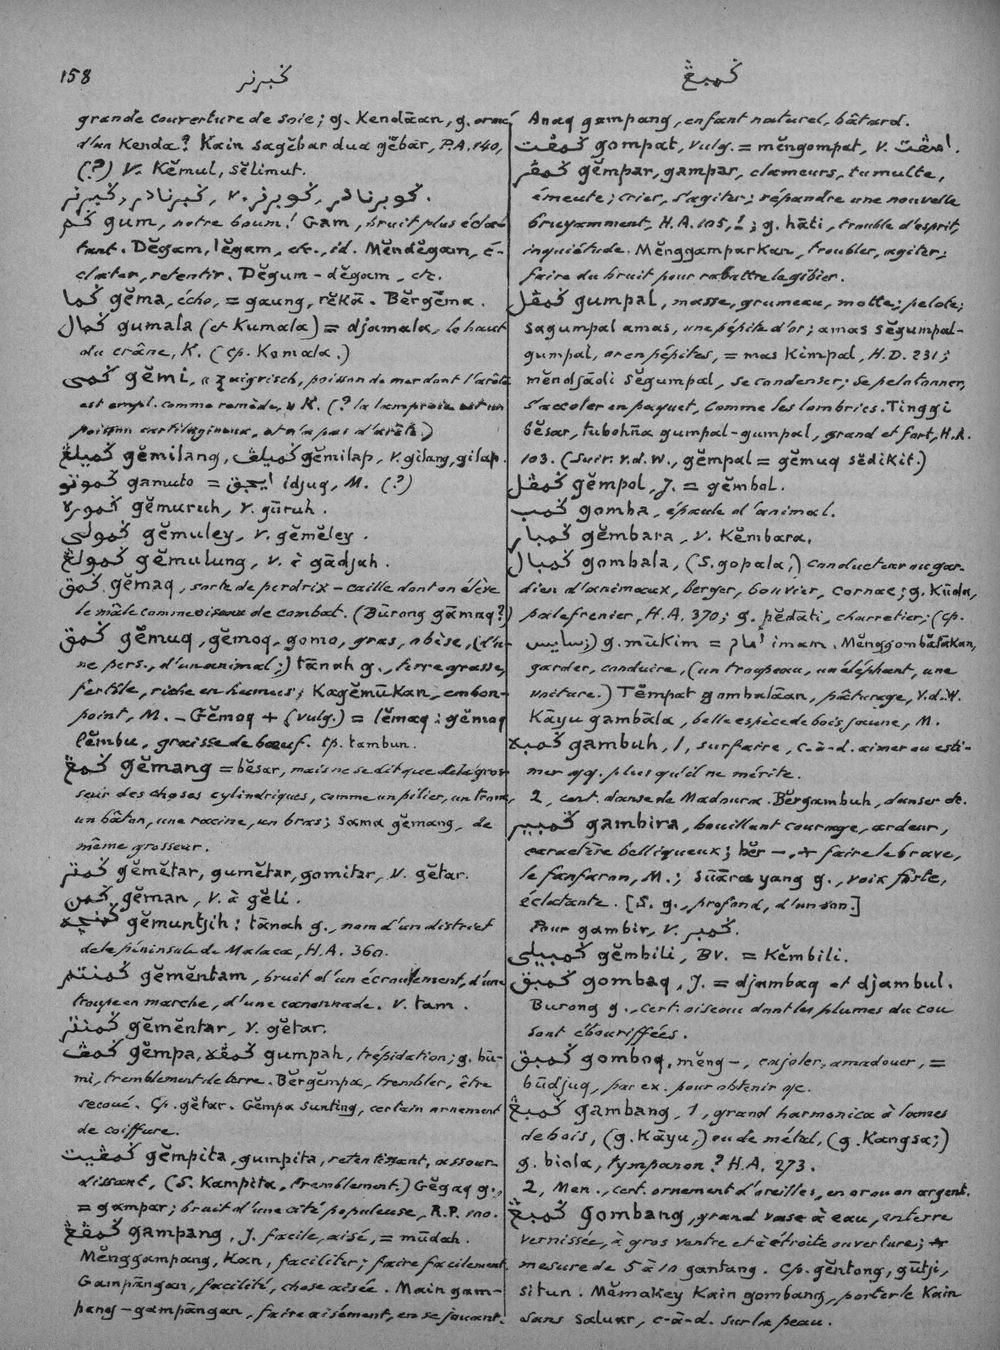 158
ݢبرنر
ݢمبڠ
grande couverture de soie; g. Kendāan, g. orné
d'un Kenda? Kain sagĕbar dua gĕbār, P.A. 140,
(?) V. Kĕmul, sĕlimut.
ݢبرنر, ݢبرنادر, v. ݢوبرنر, ݢوبرنادر.
ݢم gum, notre boum! Gam, bruit plus écla-
tant. Dĕgam, lĕgam, etc., id. Mĕndĕgam, é-
clater, retentir. Dĕgum-dĕgam, etc.
ݢما gĕma, écho, = gaung, rĕkā. Bĕrgĕma.
ݢمال gumala (et Kumala) = djamala, le haut
du crâne, K. (cp. Kamala.)
ݢمى gĕmi, a zuigvisch, poisson de mer dont l'arête
est empl. comme remède, K. (? la lamproie est un
poisson cartilagineux, et n'a pas d'arête.)
ݢميلڠ gĕmilang, ݢميلڤ gĕmilap, v. gilang, gilap.
ݢموتو gamuto = ايجق idjuq, M. (?)
ݢموره gĕmuruh, v. gūruh.
ݢمولى gĕmuley, v. gĕmĕley.
ݢمولڠ gĕmulung, v. à gādjah.
ݢمق gĕmaq, sorte de perdrix-caille dont on élève
le mâle comme oiseau de combat. (Būrong gāmaq?)
ݢمق gĕmuq, gĕmoq, gomo, gras, obèse, (d'u-
ne pers., d'un animal;) tānah g., terre grasse,
fertile, riche en humus; Kagĕmūkan, embon-
point, M. – Gĕmoq + (vulg.) = lĕmaq; gĕmoq
lĕmbu, graisse de bœuf. Cp. tambun.
ݢمڠ gĕmang = bĕsar, mais ne se dit que de la gros-
seur des choses cylindriques, comme un pilier, un tronc,
un bâton, une racine, un bras; sama gĕmang, de
même grosseur.
ݢمتر gĕmĕtar, gumĕtar, gomitar, v. gĕtar.
ݢمن gĕman, v. à gĕli.
ݢمنچه gĕmuntjih: tānah g., nom d'un district
de la péninsule de Malaca, H.A. 360.
ݢمنتم gĕmĕntam, bruit d'un écroulement, d'une
troupe en marche, d'une canonnade. v. tam.
ݢمنتر gĕmĕntar, v. gĕtar.
ݢمڤ gĕmpa, ݢمڤه gumpah, trépidation; g. bū-
mi, tremblement de terre. Bĕrgĕmpa, trembler, être
secoué. Cp. gĕtar. Gĕmpa sunting, certain ornement
de coiffure.
ݢمڤيت gĕmpita, gumpita, retentissant, assour-
dissant, (S. Kampita, tremblement.) Gĕgaq g.,
= gampar; bruit d'une cité populeuse, R.P. 100.
ݢمڤڠ gampang, J. facile, aisé, = mūdah.
Mĕnggampang, Kan, faciliter; faire facilement.
Gampāngan, facilité, chose aisée. Main gam-
pang-gampāngan, faire aisément, en se jouant.
Anaq gampang, enfant naturel, bâtard.
ݢمڤت gompat, vulg. = mĕngompat, v. امڤت.
ݢمڤر gĕmpar, gampar, clameurs, tumulte,
émeute; crier, s'agiter; répandre une nouvelle
bruyamment, H.A. 105, !; g. hāti, trouble d'esprit,
inquiétude. Mĕnggamparkan, troubler, agiter;
faire du bruit pour rabattre le gibier.
ݢمڤل gumpal, masse, grumeau, motte; pelote;
sagumpal amas, une pépite d'or; amas sĕgumpal-
gumpal, or en pépites, = mas Kimpal, H.D. 231;
mĕndjādi sĕgumpal, se condenser; se pelotonner,
s'accoler en paquet, comme les lombrics. Tinggi
bĕsar, tubohña gumpal-gumpal, grand et fort, H.A.
103. (Suiv. v.d.W., gĕmpal = gĕmuq sĕdikit.)
ݢمڤل gĕmpol, J. = gĕmbol.
ݢمب gomba, épaule d'animal.
ݢمبار gĕmbara, v. Kĕmbara.
ݢمبال gombala, (S. gopala;) conducteur ou gar-
dien d'animaux, berger, bouvier, cornac; g. Kūda,
palefrenier, H.A. 370; g. pĕdāti, charretier; (cp.
سايس;) g. mūkim = امام imam. Mĕnggombālakan,
garder, conduire, (un troupeau, un éléphant, une
voiture.) Tĕmpat gombalāan, pâturage, v.d.W.
Kāyu gambāla, belle espèce de bois jaune, M.
ݢمبه gambuh, 1, surfaire, c-à-d. aimer ou esti-
mer qq. plus qu'il ne mérite.
2, cert. danse de Madoura. Bĕrgambuh, danser do.
ݢمبير gambira, bouillant courage, ardeur,
caractère belliqueux; bĕr-, + faire le brave,
le fanfaron, M.; sūāra yang g., voix forte,
éclatante. [S. g., profond, d'un son.]
Pour gambir, v. ݢمبر.
ݢمبيلى gĕmbili, Bv. = Kĕmbili.
ݢمبق gombaq, J. = djambaq et djambul.
Burong g., cert. oiseau dont les plumes du cou
sont ébouriffées.
ݢمبق gomboq, mĕng-, enjoler, amadouer, =
būdjuq, par ex. pour obtenir qc.
ݢمبڠ gambang, 1, grand harmonica à lames
de bois, (g. Kāyu,) ou de métal, (g. Kangsa;)
g. biola, tympanon? H.A. 273.
2, Men., cert. ornement d'oreilles, en or ou en argent.
ݢمبڠ gombang, grand vase à eau, en terre
vernissée, à gros ventre et à étroite ouverture; +
mesure de 5 à 10 gantang. Cp. gĕntong, gūtji,
situn. Mĕmakey Kain gombang, porter le Kain
sans saluar, c-à-d. sur la peau.